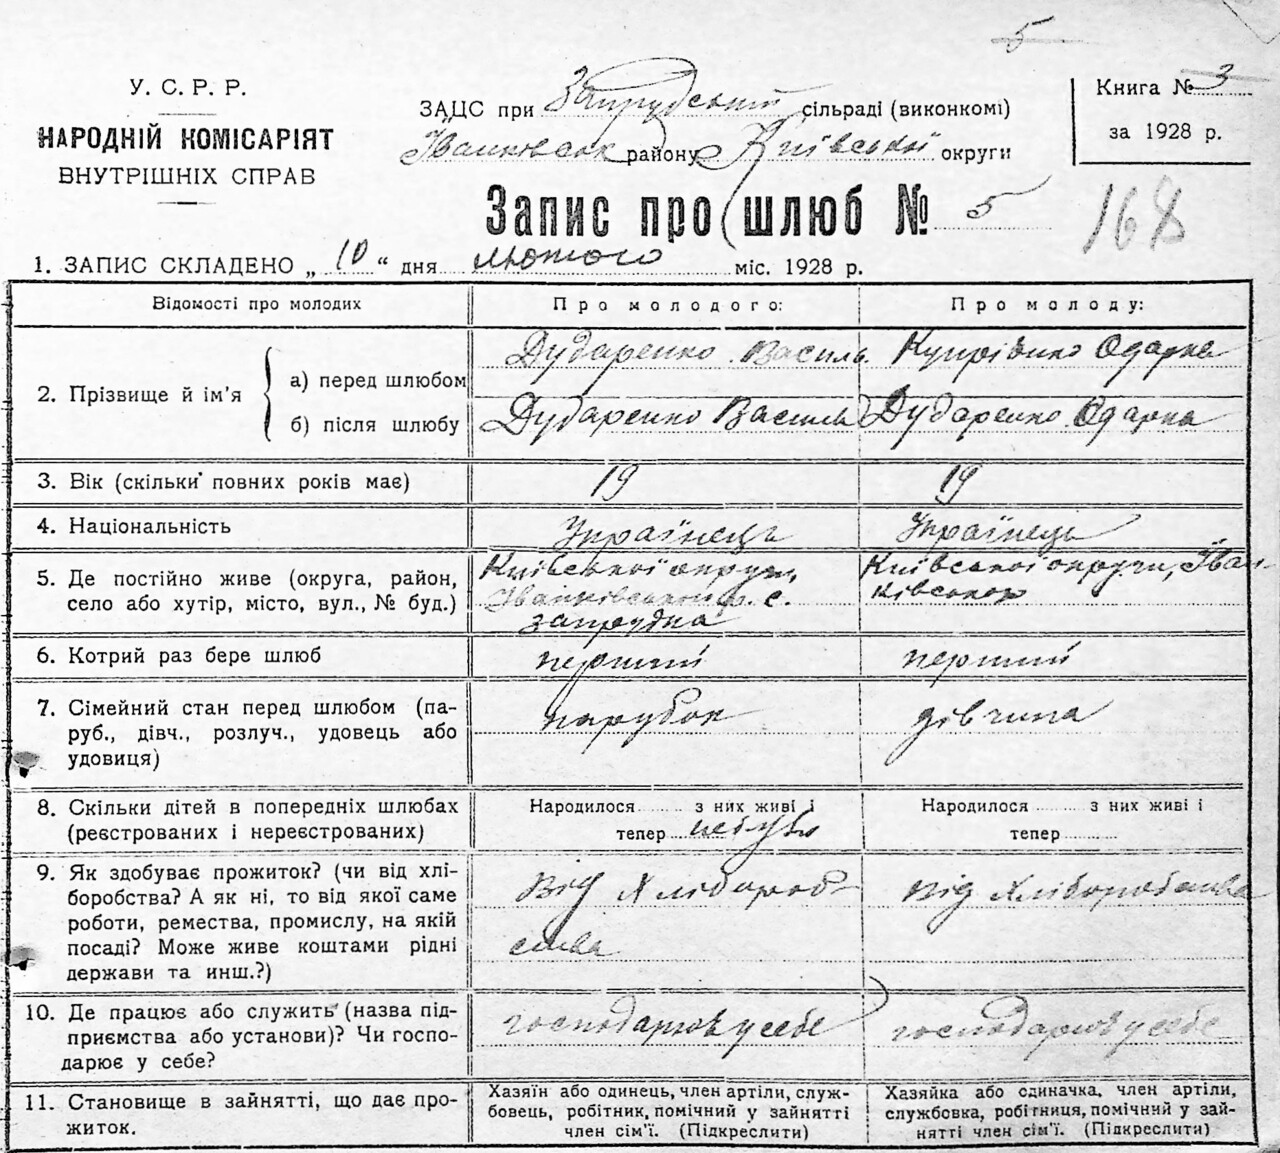 5
У. С. Р. Р.
НАРОДНІЙ КОМІСАРІЯТ
ВНУТРІШНІХ СПРАВ
ЗАЦС при Запрудській сільраді (виконкомі)
Іванківськ району Київської округи
Книга № 3
за 1928 р.
Запис про шлюб № 5
168
1. ЗАПИС СКЛАДЕНО „ 10 “ дня лютого міс. 1928 р.
Відомості про молодих Про молодого: Про молоду:
2. Прізвище й ім’я
а) перед шлюбом Дударенко Василь Купрієнко Одарка
б) після шлюбу Дударенко Василь Дударенко Одарка
3. Вік (скільки повних років має) 19 19
4. Національність Українець Українець
5. Де постійно живе (округа, район, Київської округи, Київської округи, Іван-
село або хутір, місто, вул., № буд.) Іванківськ р. с. ківськ
запрудка
6. Котрий раз бере шлюб перший перший
7. Сімейний стан перед шлюбом (па- парубок дівчина
руб., дівч., розлуч., удовець або
удовиця)
8. Скільки дітей в попередніх шлюбах Народилося з них живі і Народилося з них живі і
(реєстрованих і нереєстрованих) тепер небуло тепер
9. Як здобуває прожиток? (чи від хлі- Від Хлібороб Від Хліборобства
боробства? А як ні, то від якої саме
роботи, ремества, промислу, на якій ства
посаді? Може живе коштами рідні
держави та инш.?)
10. Де працює або служить (назва під- господарює у себе господарює у себе
приємства або установи)? Чи госпо-
дарює у себе?
11. Становище в зайнятті, що дає про- Хазяїн або одинець, член артіли, служ- Хазяйка або єдиначка, член артіли,
житок. бовець, робітник, помічний у зайнятті службовка, робітниця, помічний у зай-
член сім’ї. (Підкреслити) нятті член сім’ї. (Підкреслити)